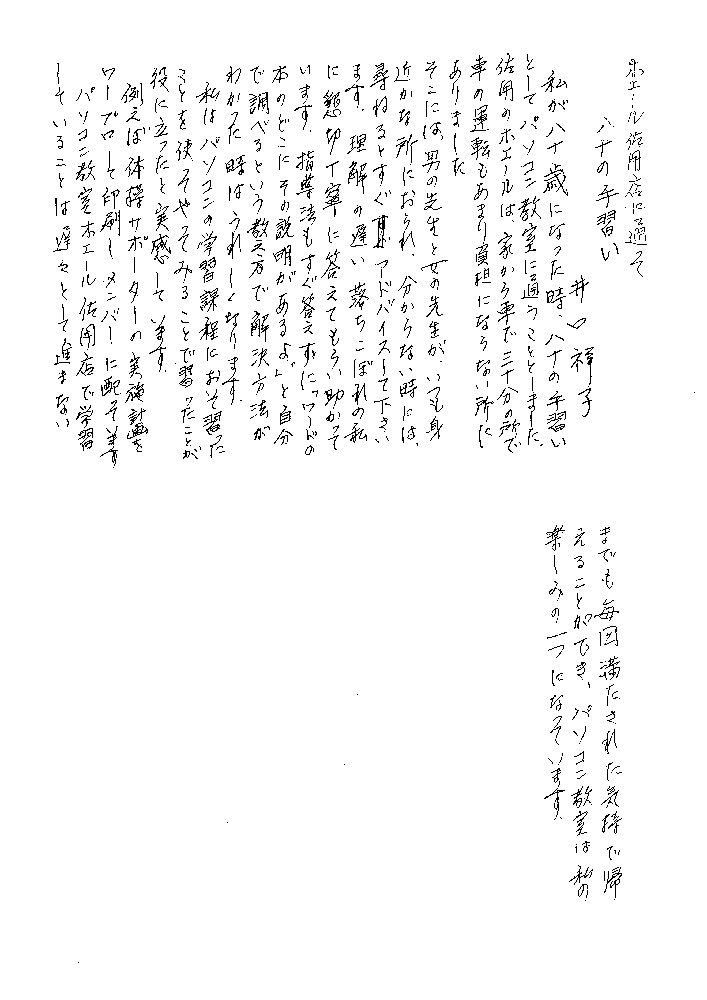 ホエール佐用店に通って
八十の手習い
井口祥子
私が八十歳になった時、八十の手習い
としてパソコン教室に通うこととしました。
佐用のホエールは、家から車で三十分の所で
車の運転もあまり負担にならない所に
ありました
そこには、男の先生と女の先生が、いつも身
近かな所におられ、分からない時には、
尋ねるとすぐアドバイスして下さい
ます。理解の遅い落ちこぼれの私
に懇切丁寧に答えてもらい助かって
います。指導法もすぐ答えずに、「ワードの
本のどこにその説明があるよ。」と自分
で調べるという教え方で解決方法が
わかった時はうれしくなります。
私はパソコンの学習課程において習った
ことを使ってやってみることで習ったことが
役に立ったと実感しています。
例えば体操サポーターの実施計画を
ワープロして印刷しメンバーに配っています
パソコン教室ホエール佐用店で学習
していることは遅々として進まない
までも毎回満たされた気持で帰
えることができ、パソコン教室は私の
楽しみの一つになっています。